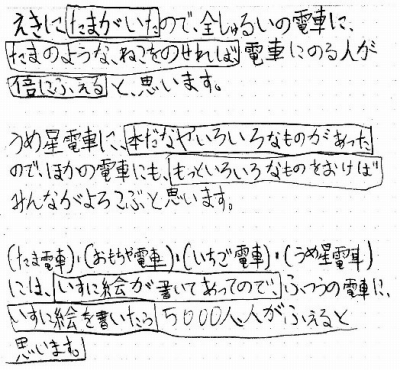 えきにたまがいたので、全しゅるいの電車に、
たまのような、ねこをのせれば電車にのる人が
倍にふえると、思います。
うめ星電車に、本だなやいろいろなものがあった
ので、ほかの電車にも、もっといろいろなものをおけば
みんながよろこぶと思います。
(たま電車)・(おもちゃ電車)・(いちご電車)・(うめ星電車)
には、いすに絵が書いてあってので、ふつうの電車に、
いすに絵を書いたら5000人、人がふえると
思います。